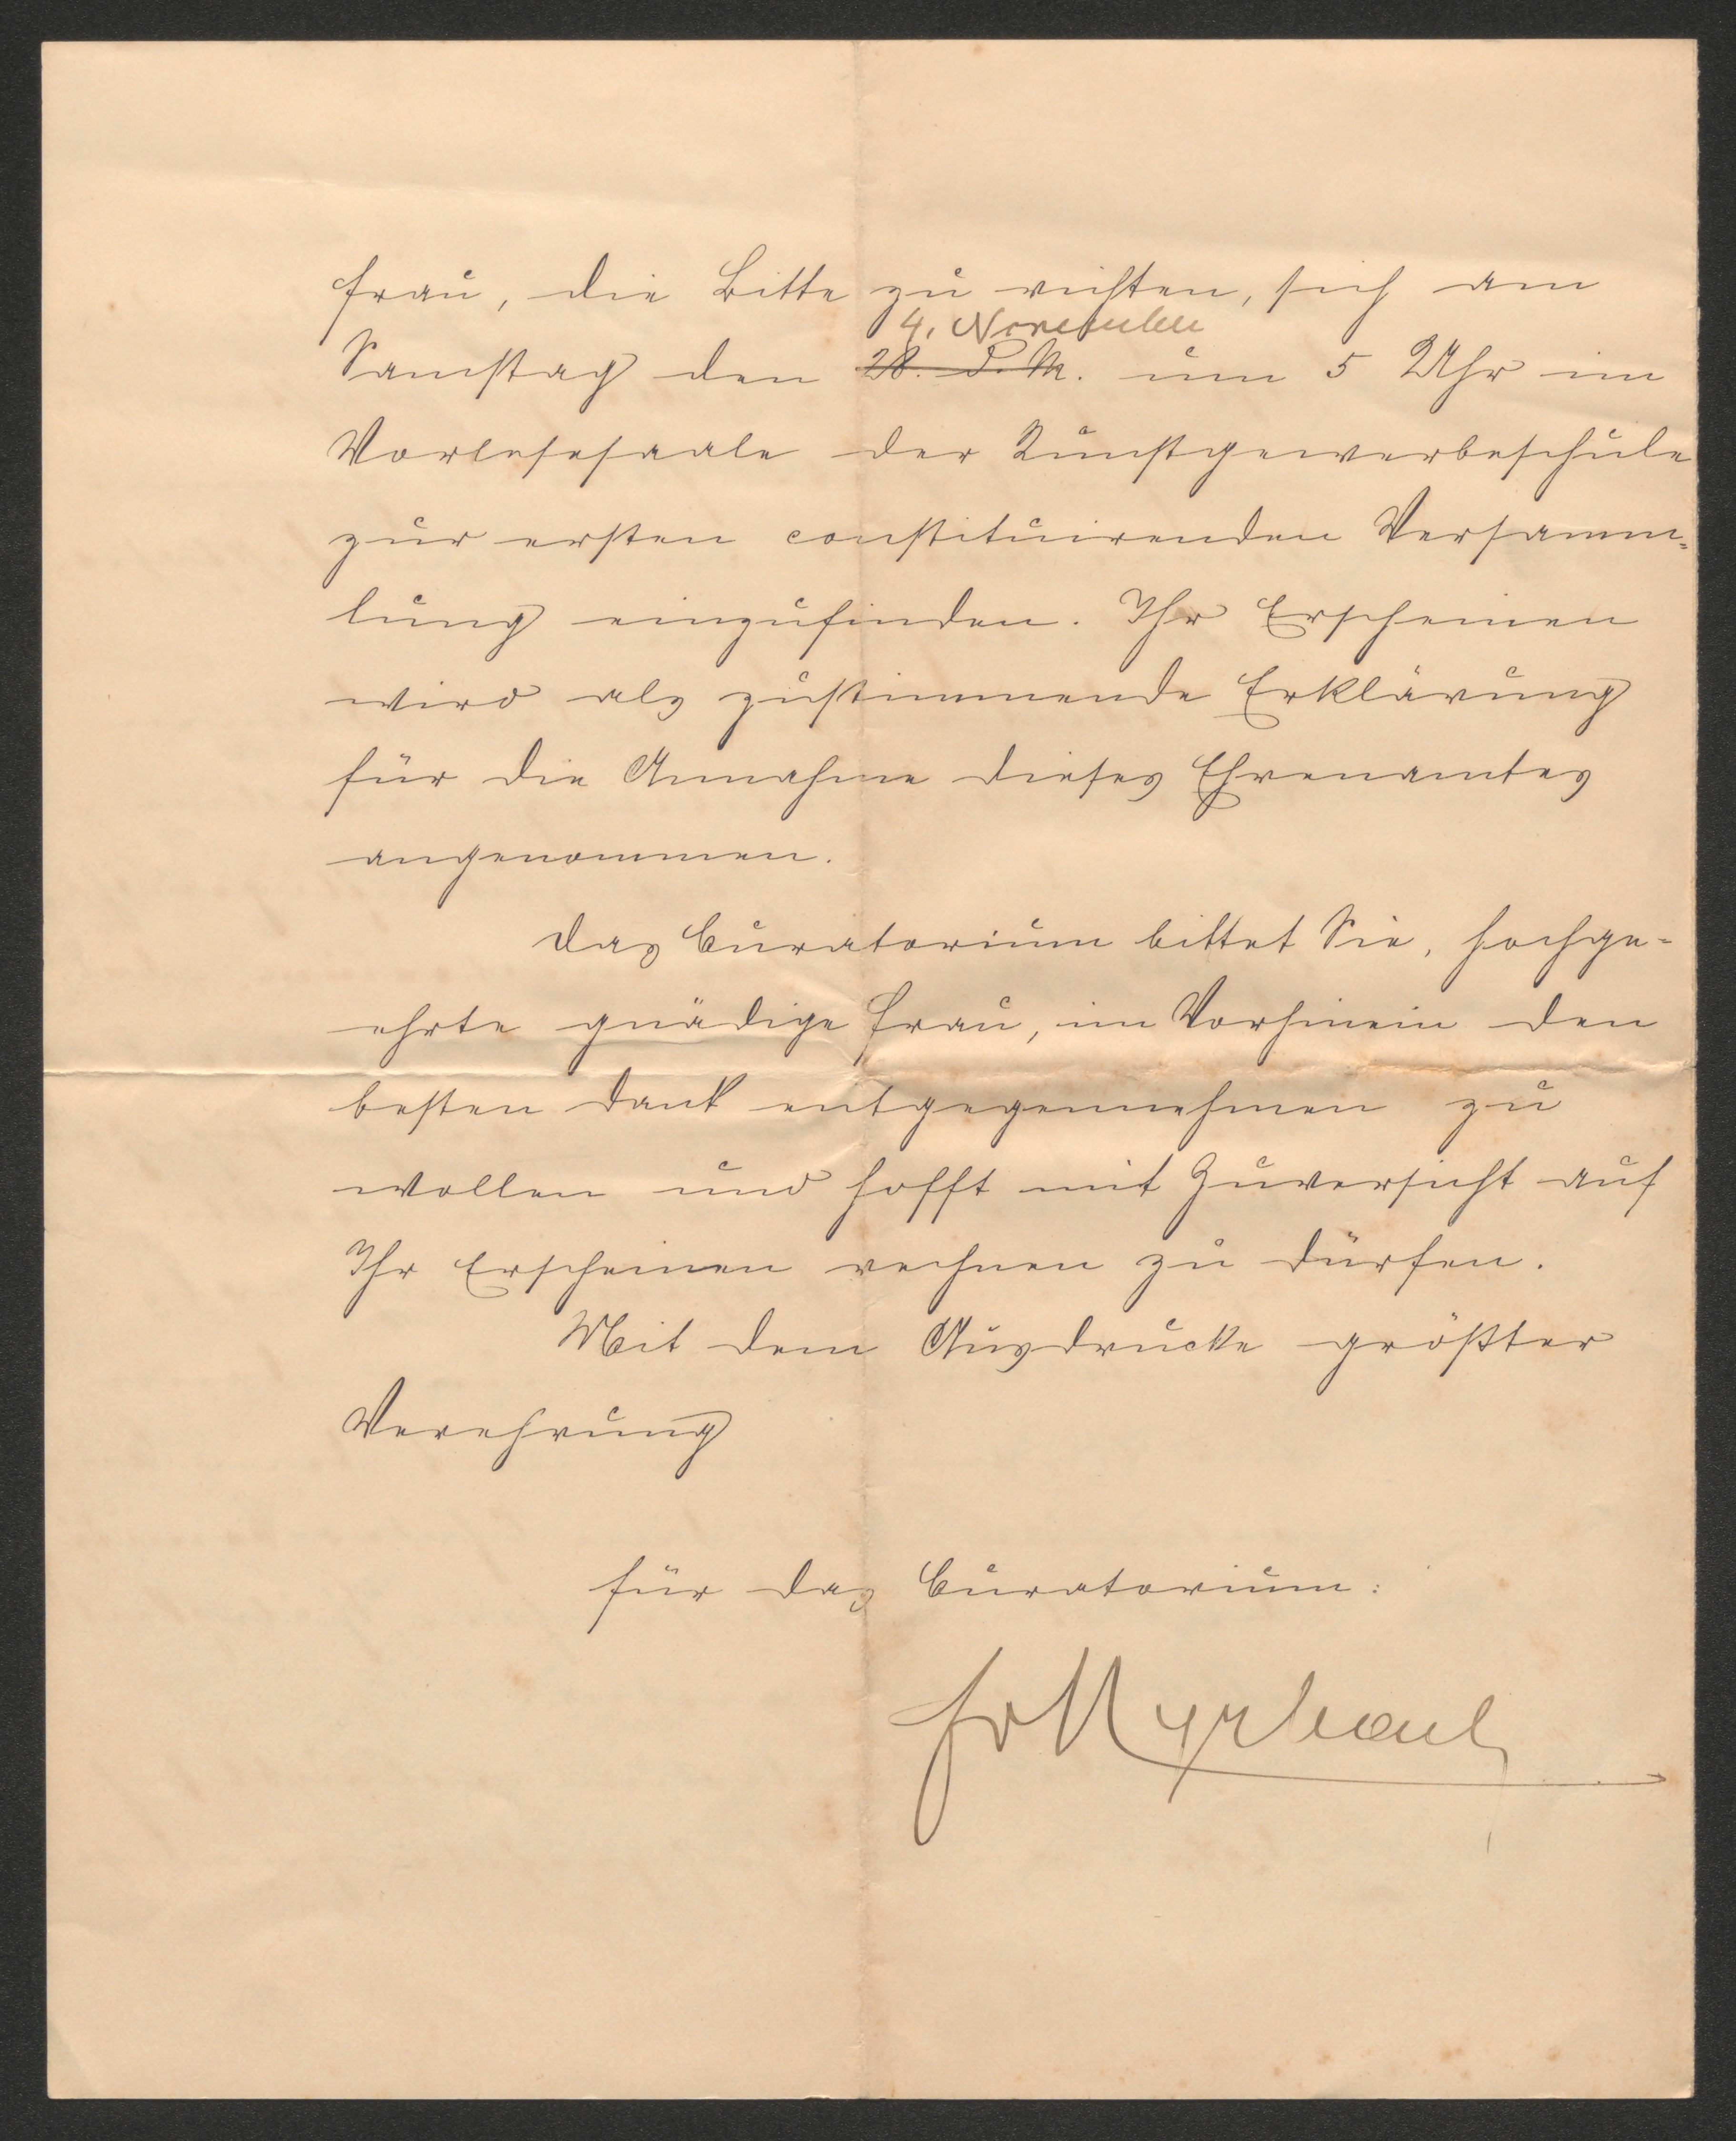 Frau, die Bitte zu richten, sich am
4. November
Samstag den 28. d. M. um 5 Uhr im
Vorlesesaale der Kunstgewerbeschule
zur ersten constituirenden Versamm=
lung einzufinden. Ihr Erscheinen
wird als zustimmende Erklärung
für die Annahme dieses Ehrenamtes
angenommen.
Das Curatorium bittet Sie, hochge=
ehrte gnädige Frau, im Vorhinein den
besten Dank entgegennehmen zu
wollen und hofft mit Zuversicht auf
Ihr Erscheinen rechnen zu dürfen.
Mit dem Ausdrucke größter
Verehrung
für das Curatorium:
FvMyrbach